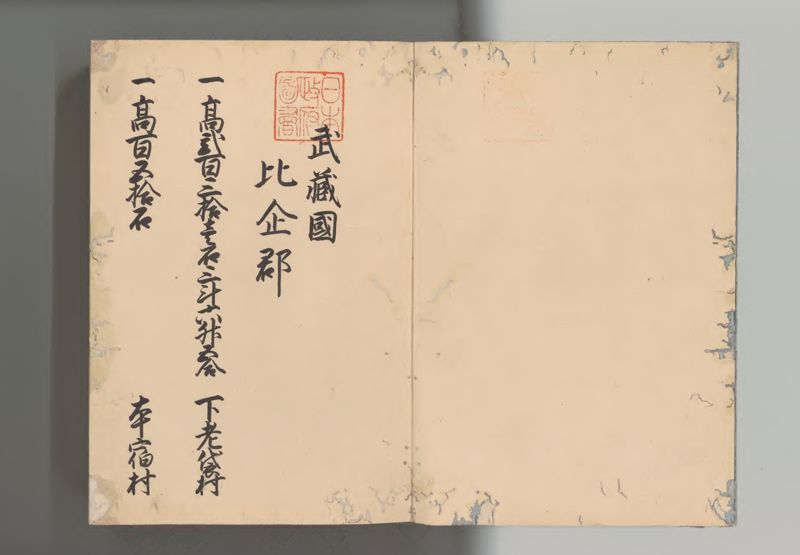 日本
政府
圖書
武藏國
比企郡
一高貳百三拾壹石三斗六升五合 下老袋村
一高百五拾石 本宿村